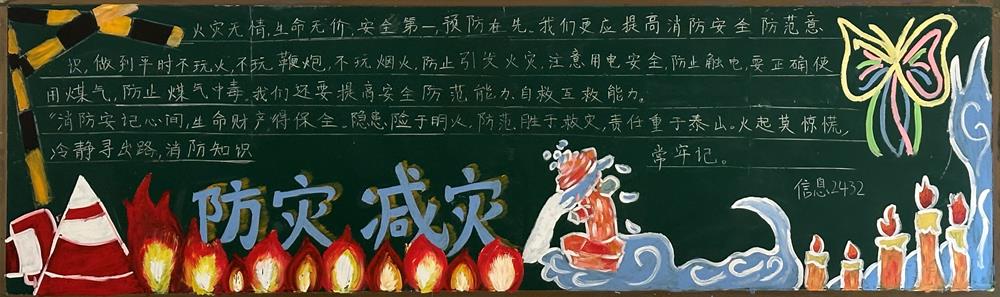 火灾无情,生命无价,安全第一,预防在先。我们更应提高消防安全防范意
识,做到平时不玩火,不玩鞭炮,不玩烟火,防止引发火灾,注意用电安全,防止触电,要正确使
用煤气,防止煤气中毒。我们还要提高安全防范能力、自救互救能力。
“消防安记心间,生命财产得保全。隐患险于明火,防范胜于救灾,责任重于泰山。火起莫惊慌,
冷静寻出路,消防知识
常牢记。
信息2432
防灾减灾